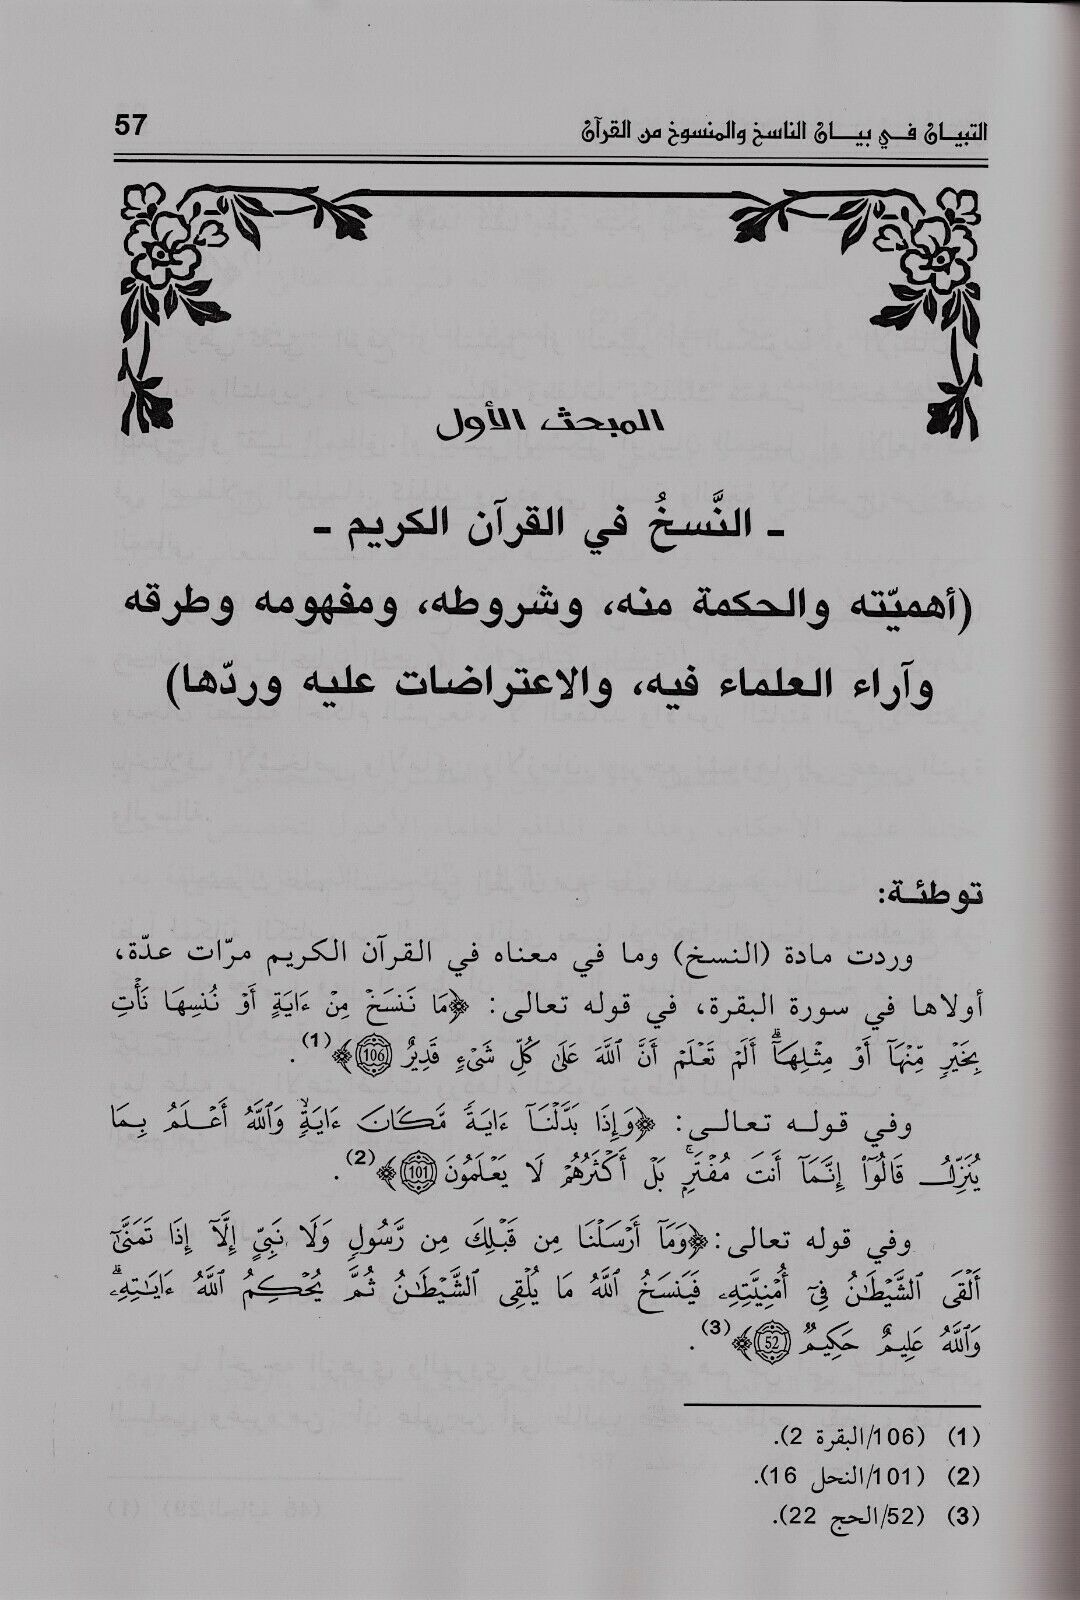 التبيان في بيان الناسخ والمنسوخ من القرآن 57
المبحث الأول
ـ النَّسخُ في القرآن الكريم ـ
(أهميّته والحكمة منه، وشروطه، ومفهومه وطرقه
وآراء العلماء فيه، والاعتراضات عليه وردّها)
توطئة:
وردت مادة (النسخ) وما في معناه في القرآن الكريم مرّات عدّة،
أولاها في سورة البقرة، في قوله تعالى: ﴿مَا نَنسَخْ مِنْ ءَايَةٍ أَوْ نُنسِهَا نَأْتِ
بِخَيْرٍ مِّنْهَآ أَوْ مِثْلِهَآۗ أَلَمْ تَعْلَمْ أَنَّ ٱللَّهَ عَلَىٰ كُلِّ شَىْءٍ قَدِيرٌ 106﴾(1).
وفي قوله تعالى: ﴿وَإِذَا بَدَّلْنَآ ءَايَةً مَّكَانَ ءَايَةٍۙ وَٱللَّهُ أَعْلَمُ بِمَا
يُنَزِّلُ قَالُوٓا۟ إِنَّمَآ أَنتَ مُفْتَرٍۭۚ بَلْ أَكْثَرُهُمْ لَا يَعْلَمُونَ 101﴾(2).
وفي قوله تعالى: ﴿وَمَآ أَرْسَلْنَا مِن قَبْلِكَ مِن رَّسُولٍ وَلَا نَبِىٍّ إِلَّآ إِذَا تَمَنَّىٰٓ
أَلْقَى ٱلشَّيْطَـٰنُ فِىٓ أُمْنِيَّتِهِۦ فَيَنسَخُ ٱللَّهُ مَا يُلْقِى ٱلشَّيْطَـٰنُ ثُمَّ يُحْكِمُ ٱللَّهُ ءَايَـٰتِهِۦۗ
وَٱللَّهُ عَلِيمٌ حَكِيمٌ 52﴾(3).
(1) (106/البقرة 2).
(2) (101/النحل 16).
(3) (52/الحج 22).